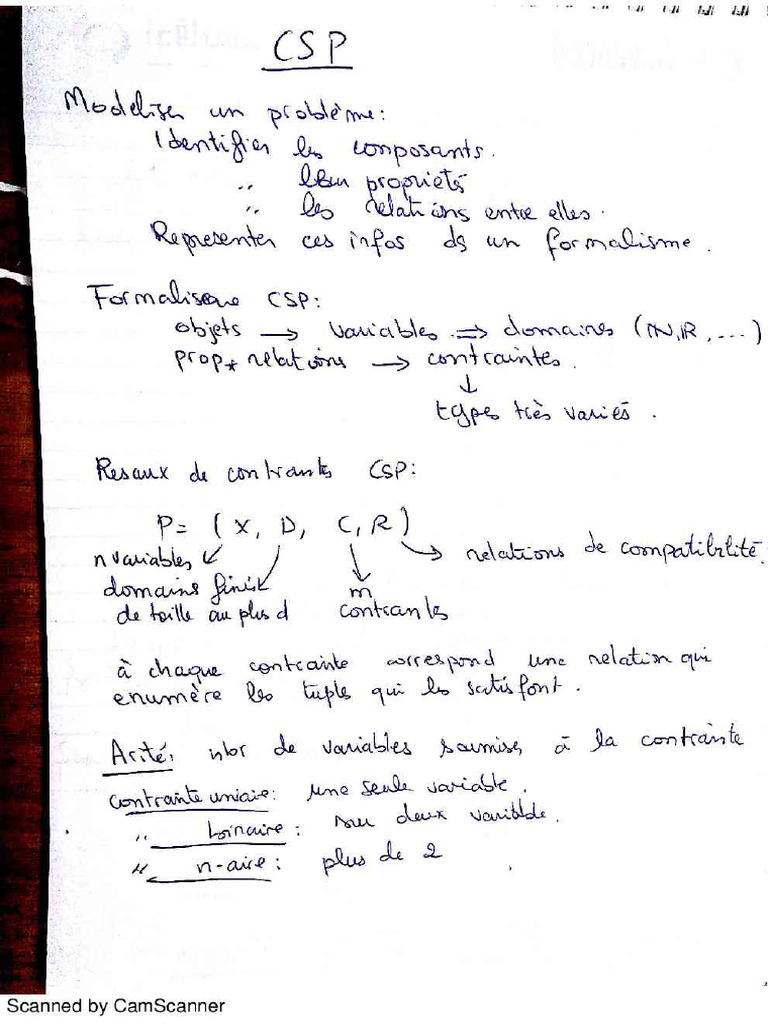 CSP
Modeliser un problème:
Identifier les composants.
" leur propriétés
" les relations entre elles.
Representer ces infos ds un formalisme.
Formalisme CSP:
objets → variables ⇒ domaines (IN, IR, ....)
prop + relations → contraintes.
↓
types très variés.
Resaux de contraints CSP:
P = (X, D, C, R)
n variables relations de compatibilité.
domains finis m
de taille au plus d contrantes
à chaque contrainte correspond une relation qui
enumère les tuple qui les satisfont.
Arité: nbr de variables soumises à la contrainte
Contrante uniaire: une seule variable.
" binaire: sur deux varible.
" n-aire: plus de 2
Scanned by CamScanner